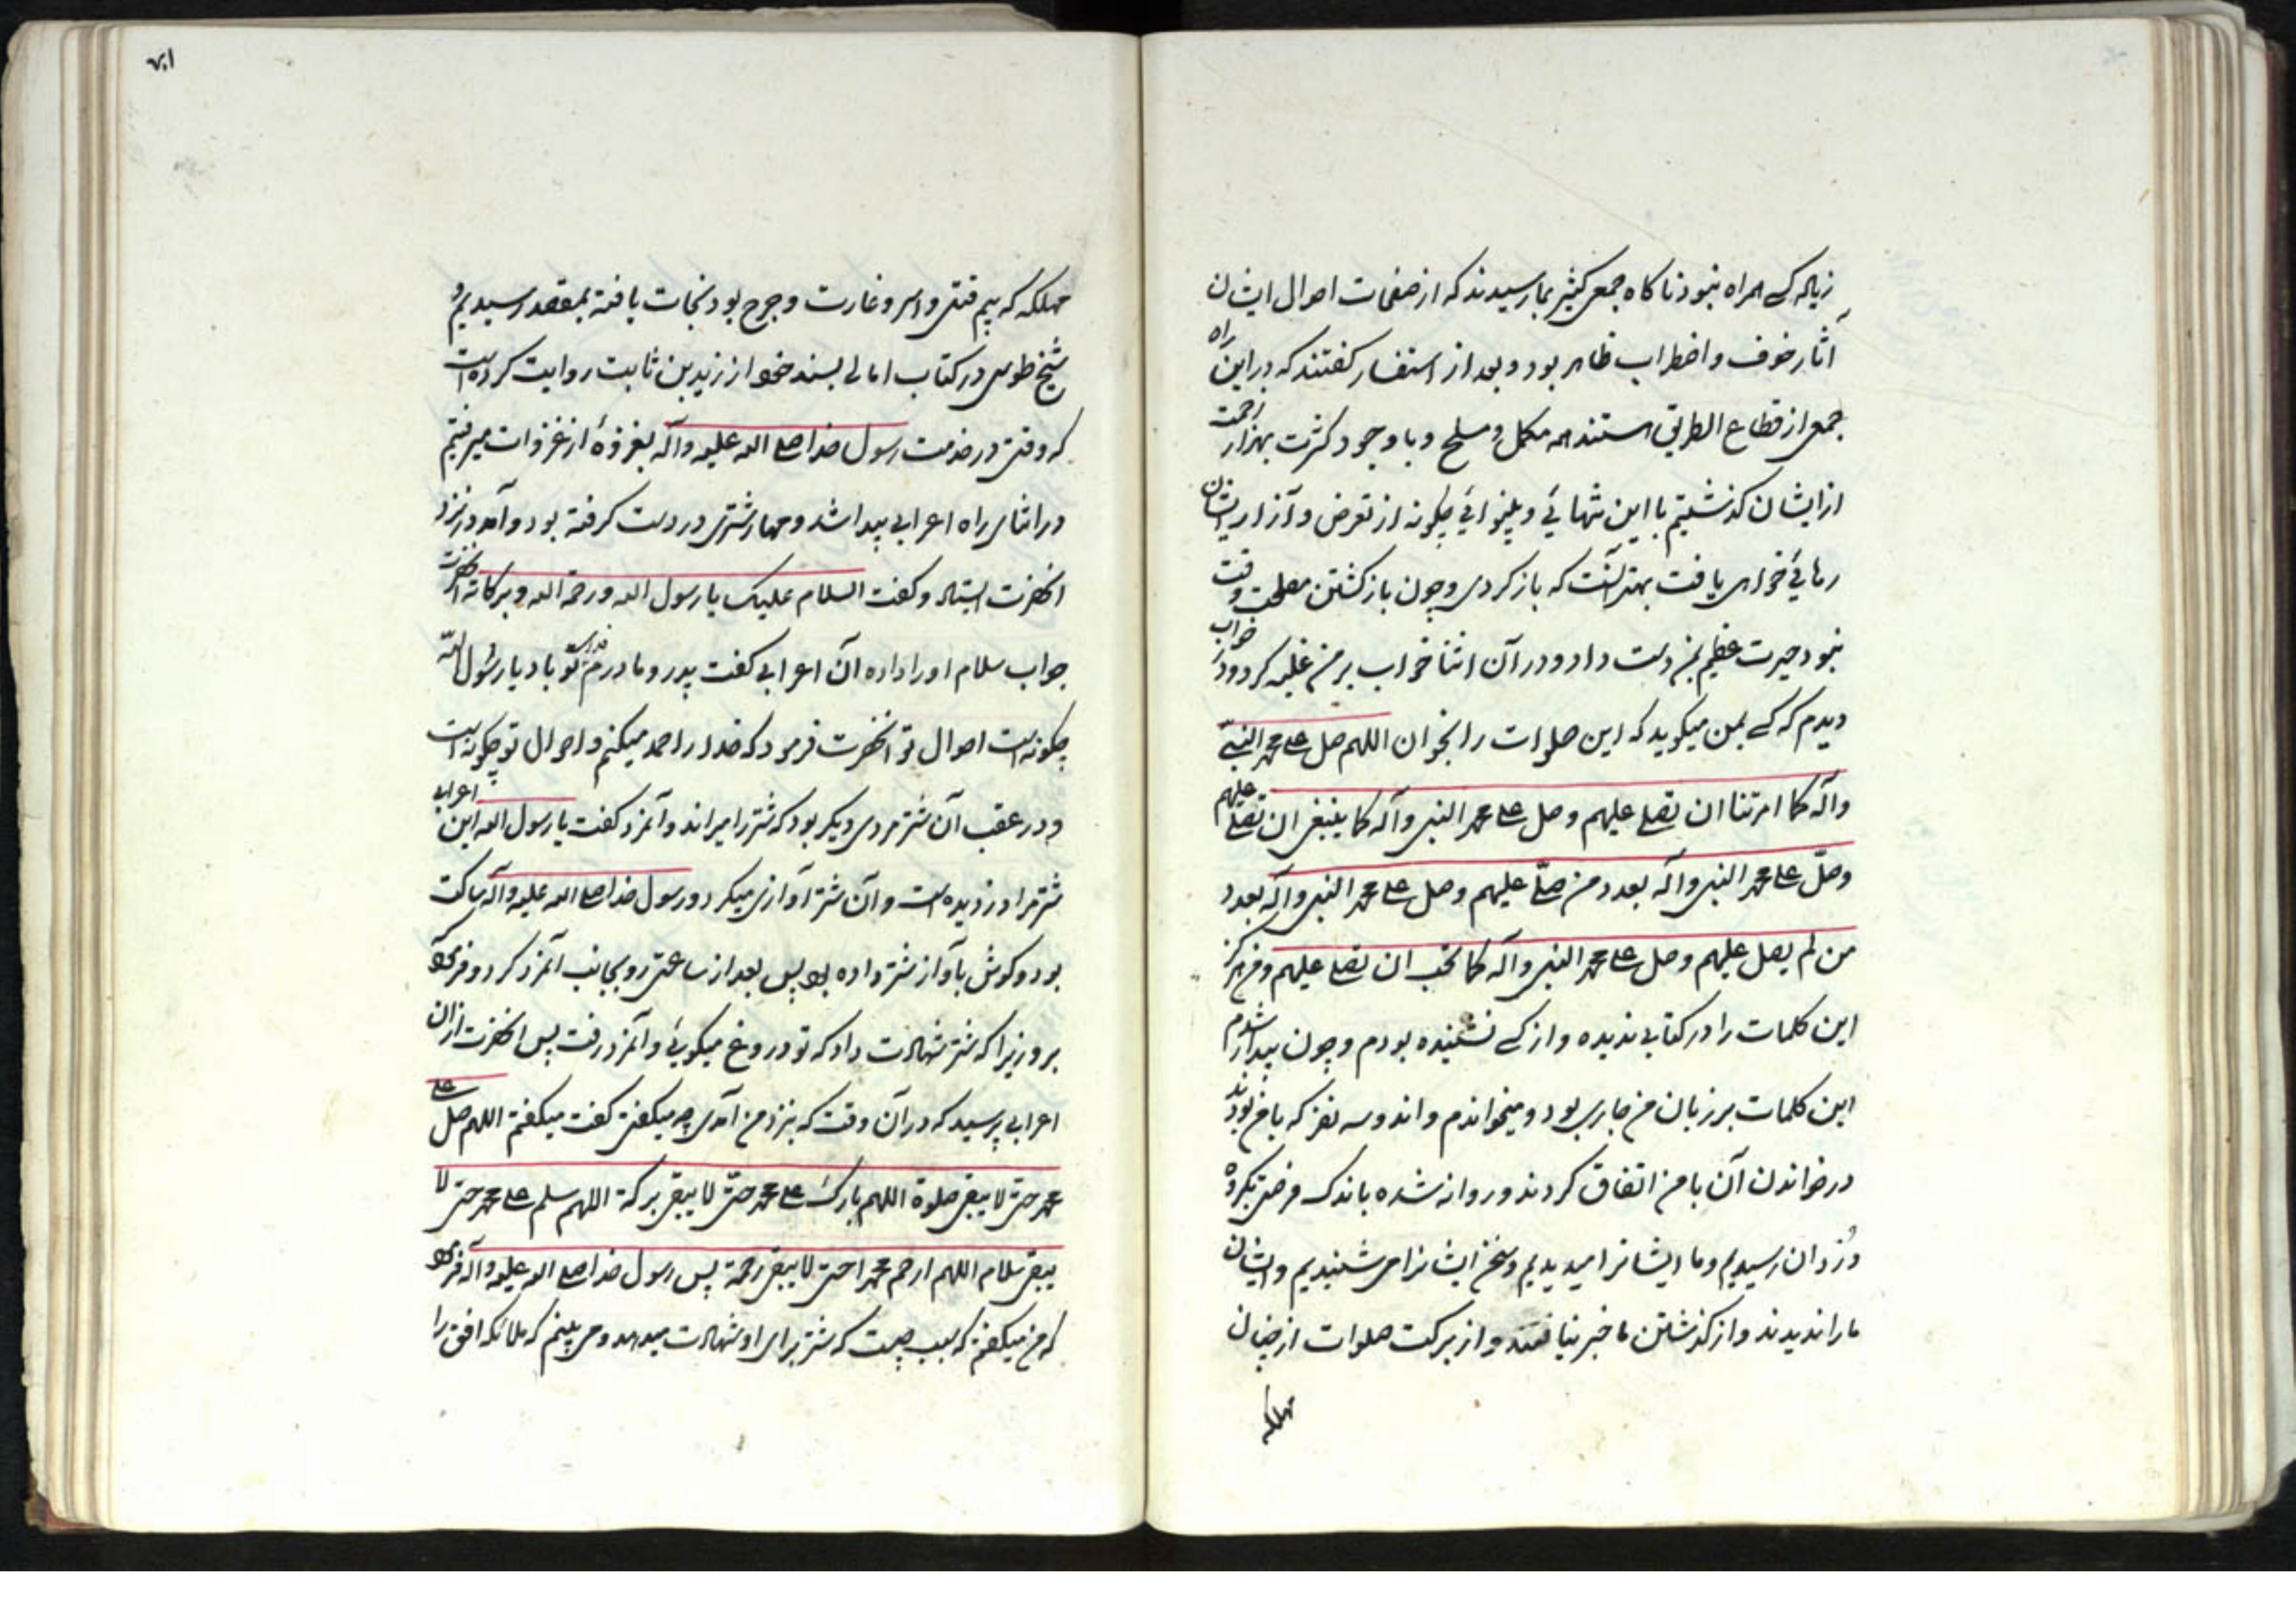 زیاده کسی همراه نبود ناکاه جمعی کثیر بما رسیدند که از صفحات احوال ایشان
آثار خوف و اضطراب ظاهر بود و بعد از استفسار کفتند که در این راه
جمعی از قطاع الطریق هستند همه مکمل و مسلح و با وجود کثرت بهزار زحمت
از ایشان کذشتیم با این تنهائی و بینوائی چکونه از تعرض و آزار ایشان
رهائی خواهی یافت بهتر آنست که باز کردی و چون باز کشتن مصلحت وقت
نبود حیرت عظیم بمن دست داد و در آن اثنا خواب بر من غلبه کرد و در خواب
دیدم که کسی بمن میکوید که این صلوات را بخوان اللهم صل علی محمد النبی
وآله کما امرتنا ان تصلی علیهم وصل علی محمد النبی وآله کما ینبغی ان تصلی علیهم
وصلّ علی محمد النبی وآله بعدد من صلّی علیهم وصل علی محمد النبی وآله بعدد
من لم یصل علیهم وصل علی محمد النبی وآله کما تحب ان تصلی علیهم و من هرکز
این کلمات را در کتابی ندیده و از کسی نشنیده بودم و چون بیدار شدم
این کلمات بر زبان من جاری بود و میخواندم و اندو سه نفر که با من بودند
در خواندن آن با من اتفاق کردند و روانه شده باندک فرصتی بکروه
دُزدان رسیدیم و ما ایشانرا میدیدیم و سخن ایشانرا می شنیدیم و ایشان
ما را ندیدند و از کذشتن ما خبر نیافتند و از برکت صلوات از چنان
مهلکه
۷۱
مهلکه که بیم قتل و اسر و غارت و جرح بود نجات یافته بمقصد رسیدیم و
شیخ طوسی در کتاب امالی بسند خود از زید بن ثابت روایت کرده است
که وقتی در خدمت رسول خدا صلی الله علیه وآله بغزوهٔ از غزوات میرفتیم
در اثنای راه اعرابی پیدا شد و مهار شتری در دست کرفته بود و آمد و در نزد
آنحضرت ایستاد و کفت السلام علیک یا رسول الله ورحمة الله وبرکاته آنحضرت
جواب سلام او را داده آن اعرابی کفت پدر و مادرم فدای تو باد یا رسول الله
چکونه است احوال تو آنحضرت فرمود که خدا را حمد میکنم و احوال تو چکونه است
و در عقب آن شتر مردی دیکر بود که شتر را میراند و آنمرد کفت یا رسول الله این اعرابی
شتر مرا دزدیده است و آن شتر آوازی میکرد و رسول خدا صلی الله علیه وآله ساکت
بود و کوش بآواز شتر داده بود پس بعد از ساعتی رو بجانب آنمرد کرد و فرمود
برو زیرا که شتر شهادت داد که تو دروغ میکوئی و آنمرد رفت پس آنحضرت از آن
اعرابی پرسید که در آن وقت که بنزد من آمدی چه میکفتی کفت میکفتم اللهم صل علی
محمد حتی لا یبقی صلوة اللهم بارک علی محمد حتّی لا یبقی برکة اللهم سلم علی محمد حتی لا
یبقی سلام اللهم ارحم محمدا حتی لا یبقی رحمة پس رسول خدا صلی الله علیه وآله فرمود
که من میکفتم که سبب چیست که شتر برای او شهادت میدهد و می بینم که ملائکه افق را